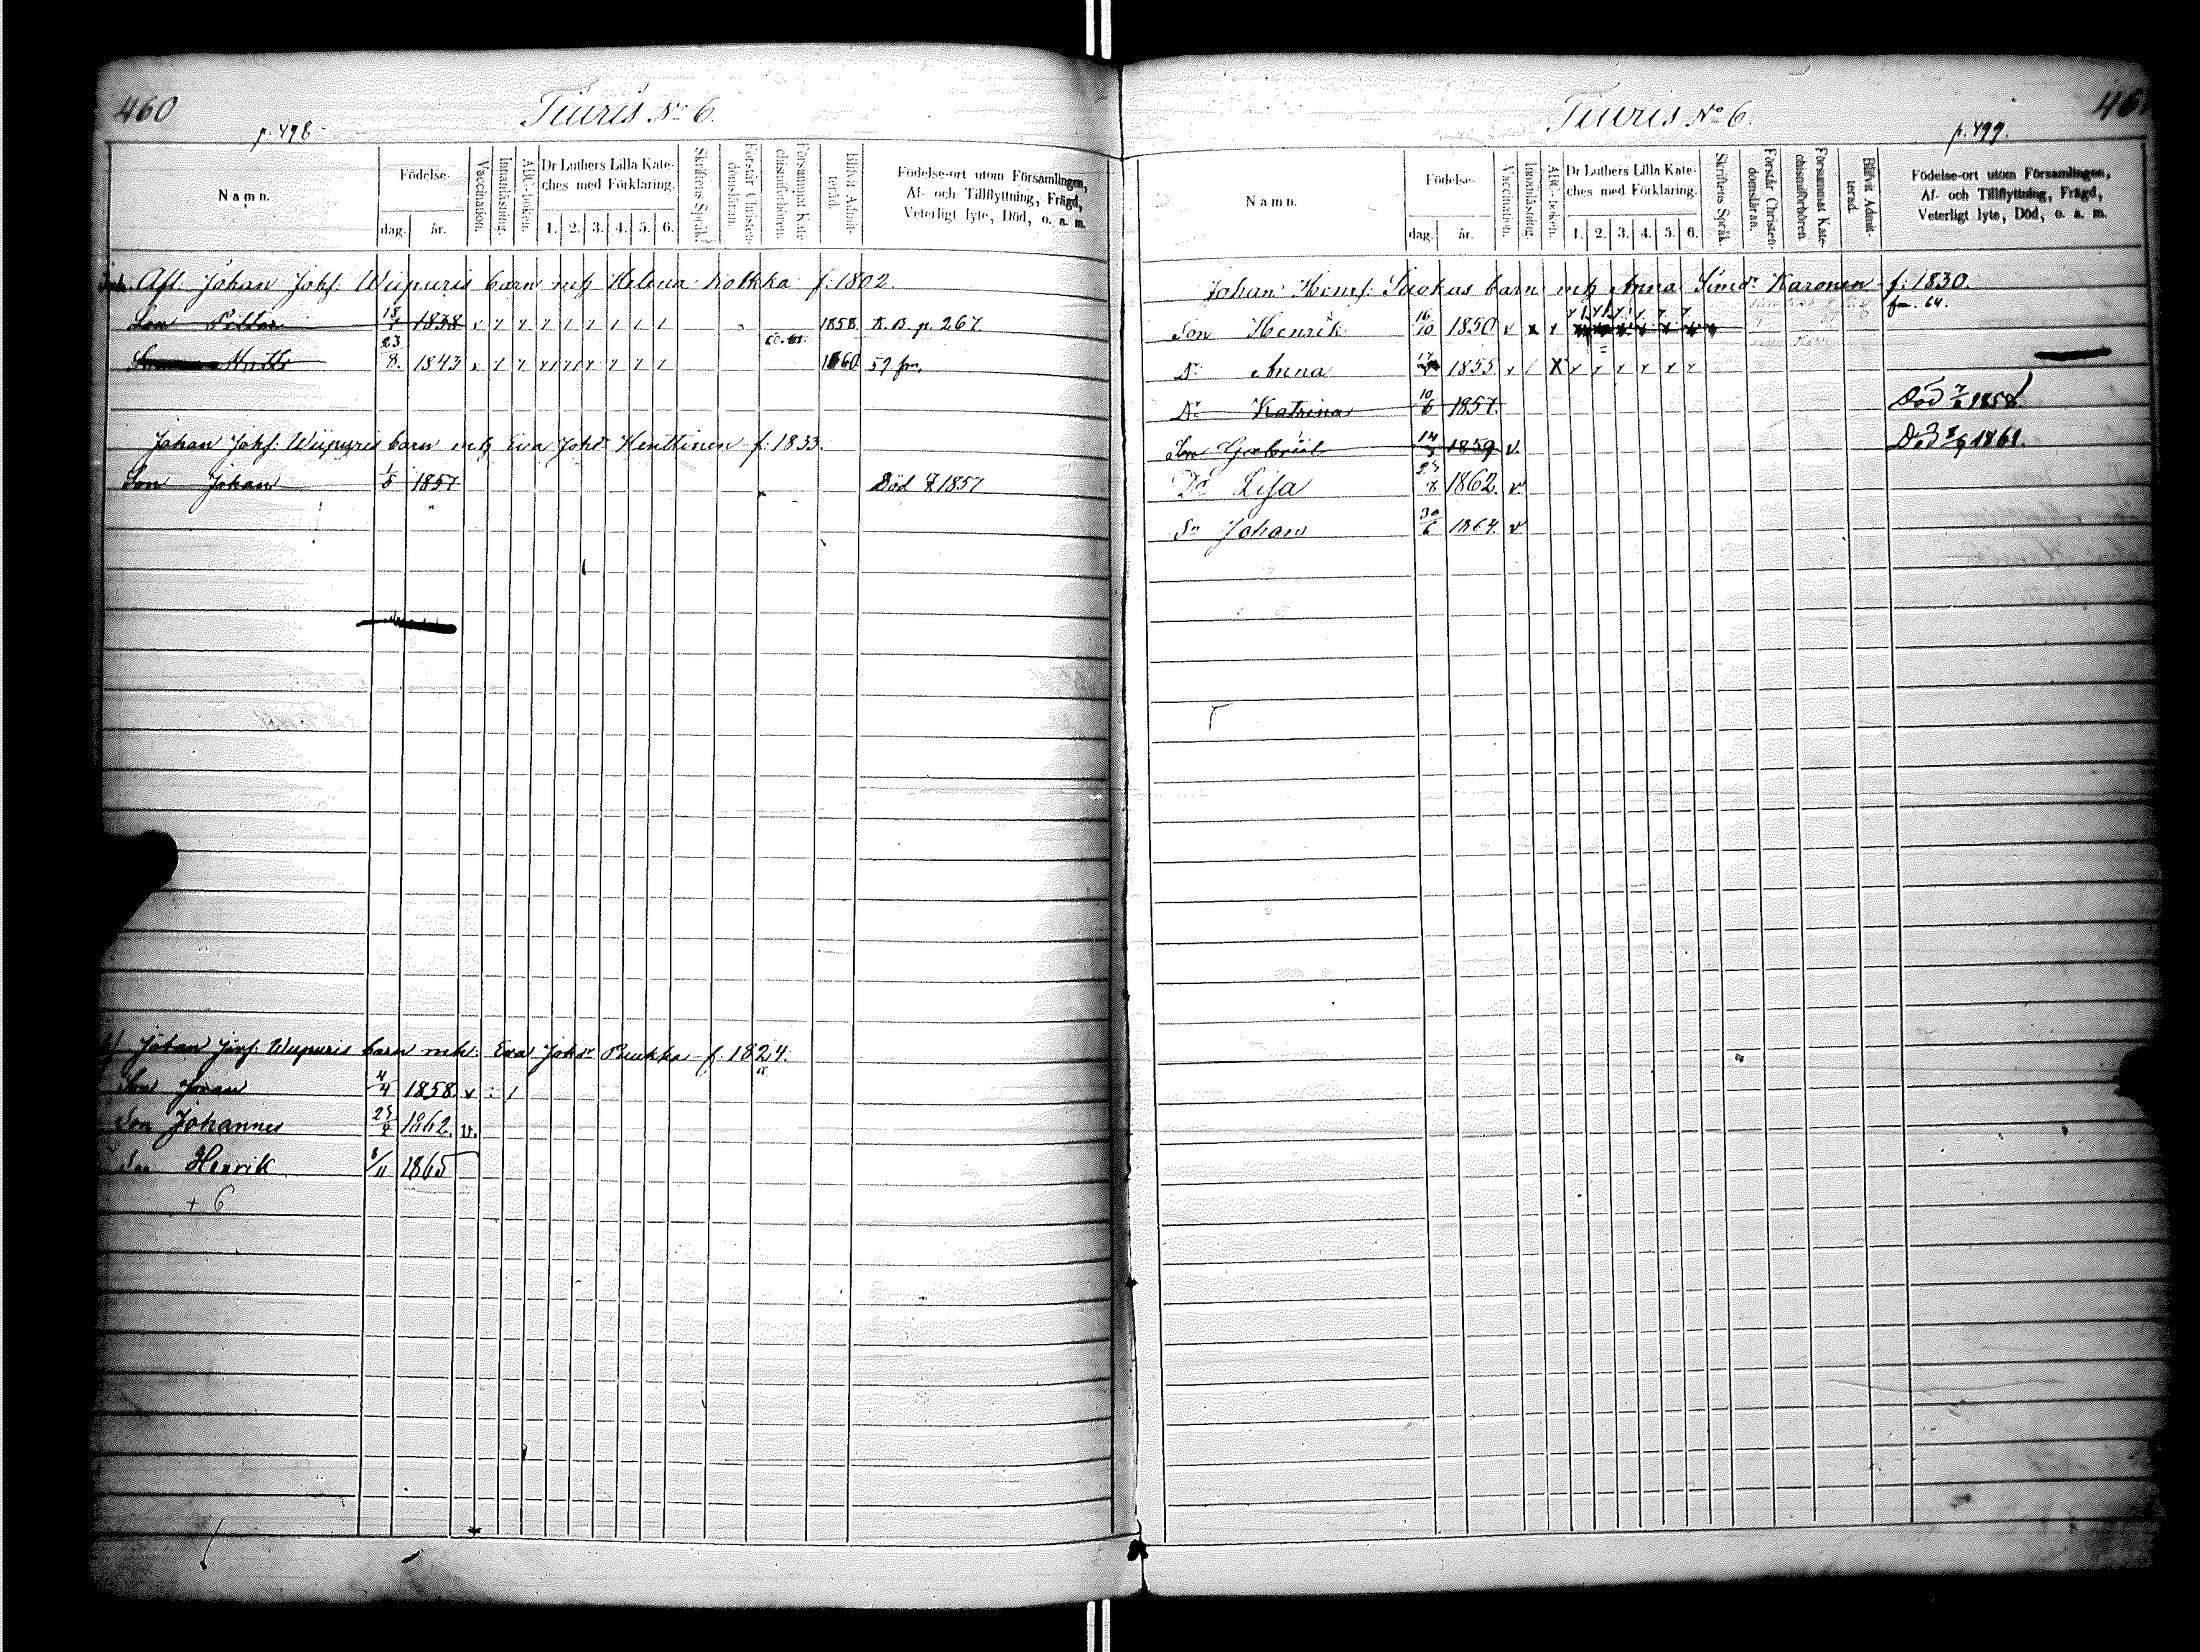 460
Tiuris No 6.
p. 498
Namn.
Födelse-
dag.
år.
Vaccination.
Innanläsning.
ABC-boken.
Dr Luthers Lilla Kate-
ches med Förklaring.
1. 2. 3. 4. 5. 6.
Skriftens Språk.
Förstår Christen-
domsläran.
Försummat Kate-
chismiförhören.
Blifvit Admit-
terad.
Födelse-ort utom Församlingen,
Af- och Tillflyttning, Frägd,
Veterligt lyte, Död, o. a. m.
Afl. Johan Johs. Wiipuris barn m Helena Kotkka f. 1802
Son Petter 1838 1858 K. B. p. 267
Matts 23/8. 1843 1860 59
Johan Johs. Wiipuris barn m Eva Johsdr Henttinen f. 1833.
Son Johan 1/5 1857 Död 1857
Johan Johs. Wiipuris barn m Eva Johsdr f. 1824.
Son Johan 4/4 1858 v
Son Johannes 1862. v.
Son Henrik 8/11 1865
+ 6
Tiuris No 6.
p. 499.
Namn.
Födelse-
dag.
år.
Vaccination.
Innanläsning.
ABC-boken.
Dr Luthers Lilla Kate-
ches med Förklaring.
1. 2. 3. 4. 5. 6.
Skriftens Språk.
Förstår Christen-
domsläran.
Försummat Kate-
chismiförhören.
Blifvit Admit-
terad.
Födelse-ort utom Församlingen,
Af- och Tillflyttning, Frägd,
Veterligt lyte, Död, o. a. m.
Johan Henrs. barn m Anna Simsdr Karonen f. 1830.
Son Henrik 16/10 1850 v 64.
Dr Anna 17 1855
Dr Katrina 10/6 1857. Död 1858.
Son Gabriel 14 1859 v. Död 1861.
Dr Lisa 1862. v
Sn Johan 30/6 1864. v